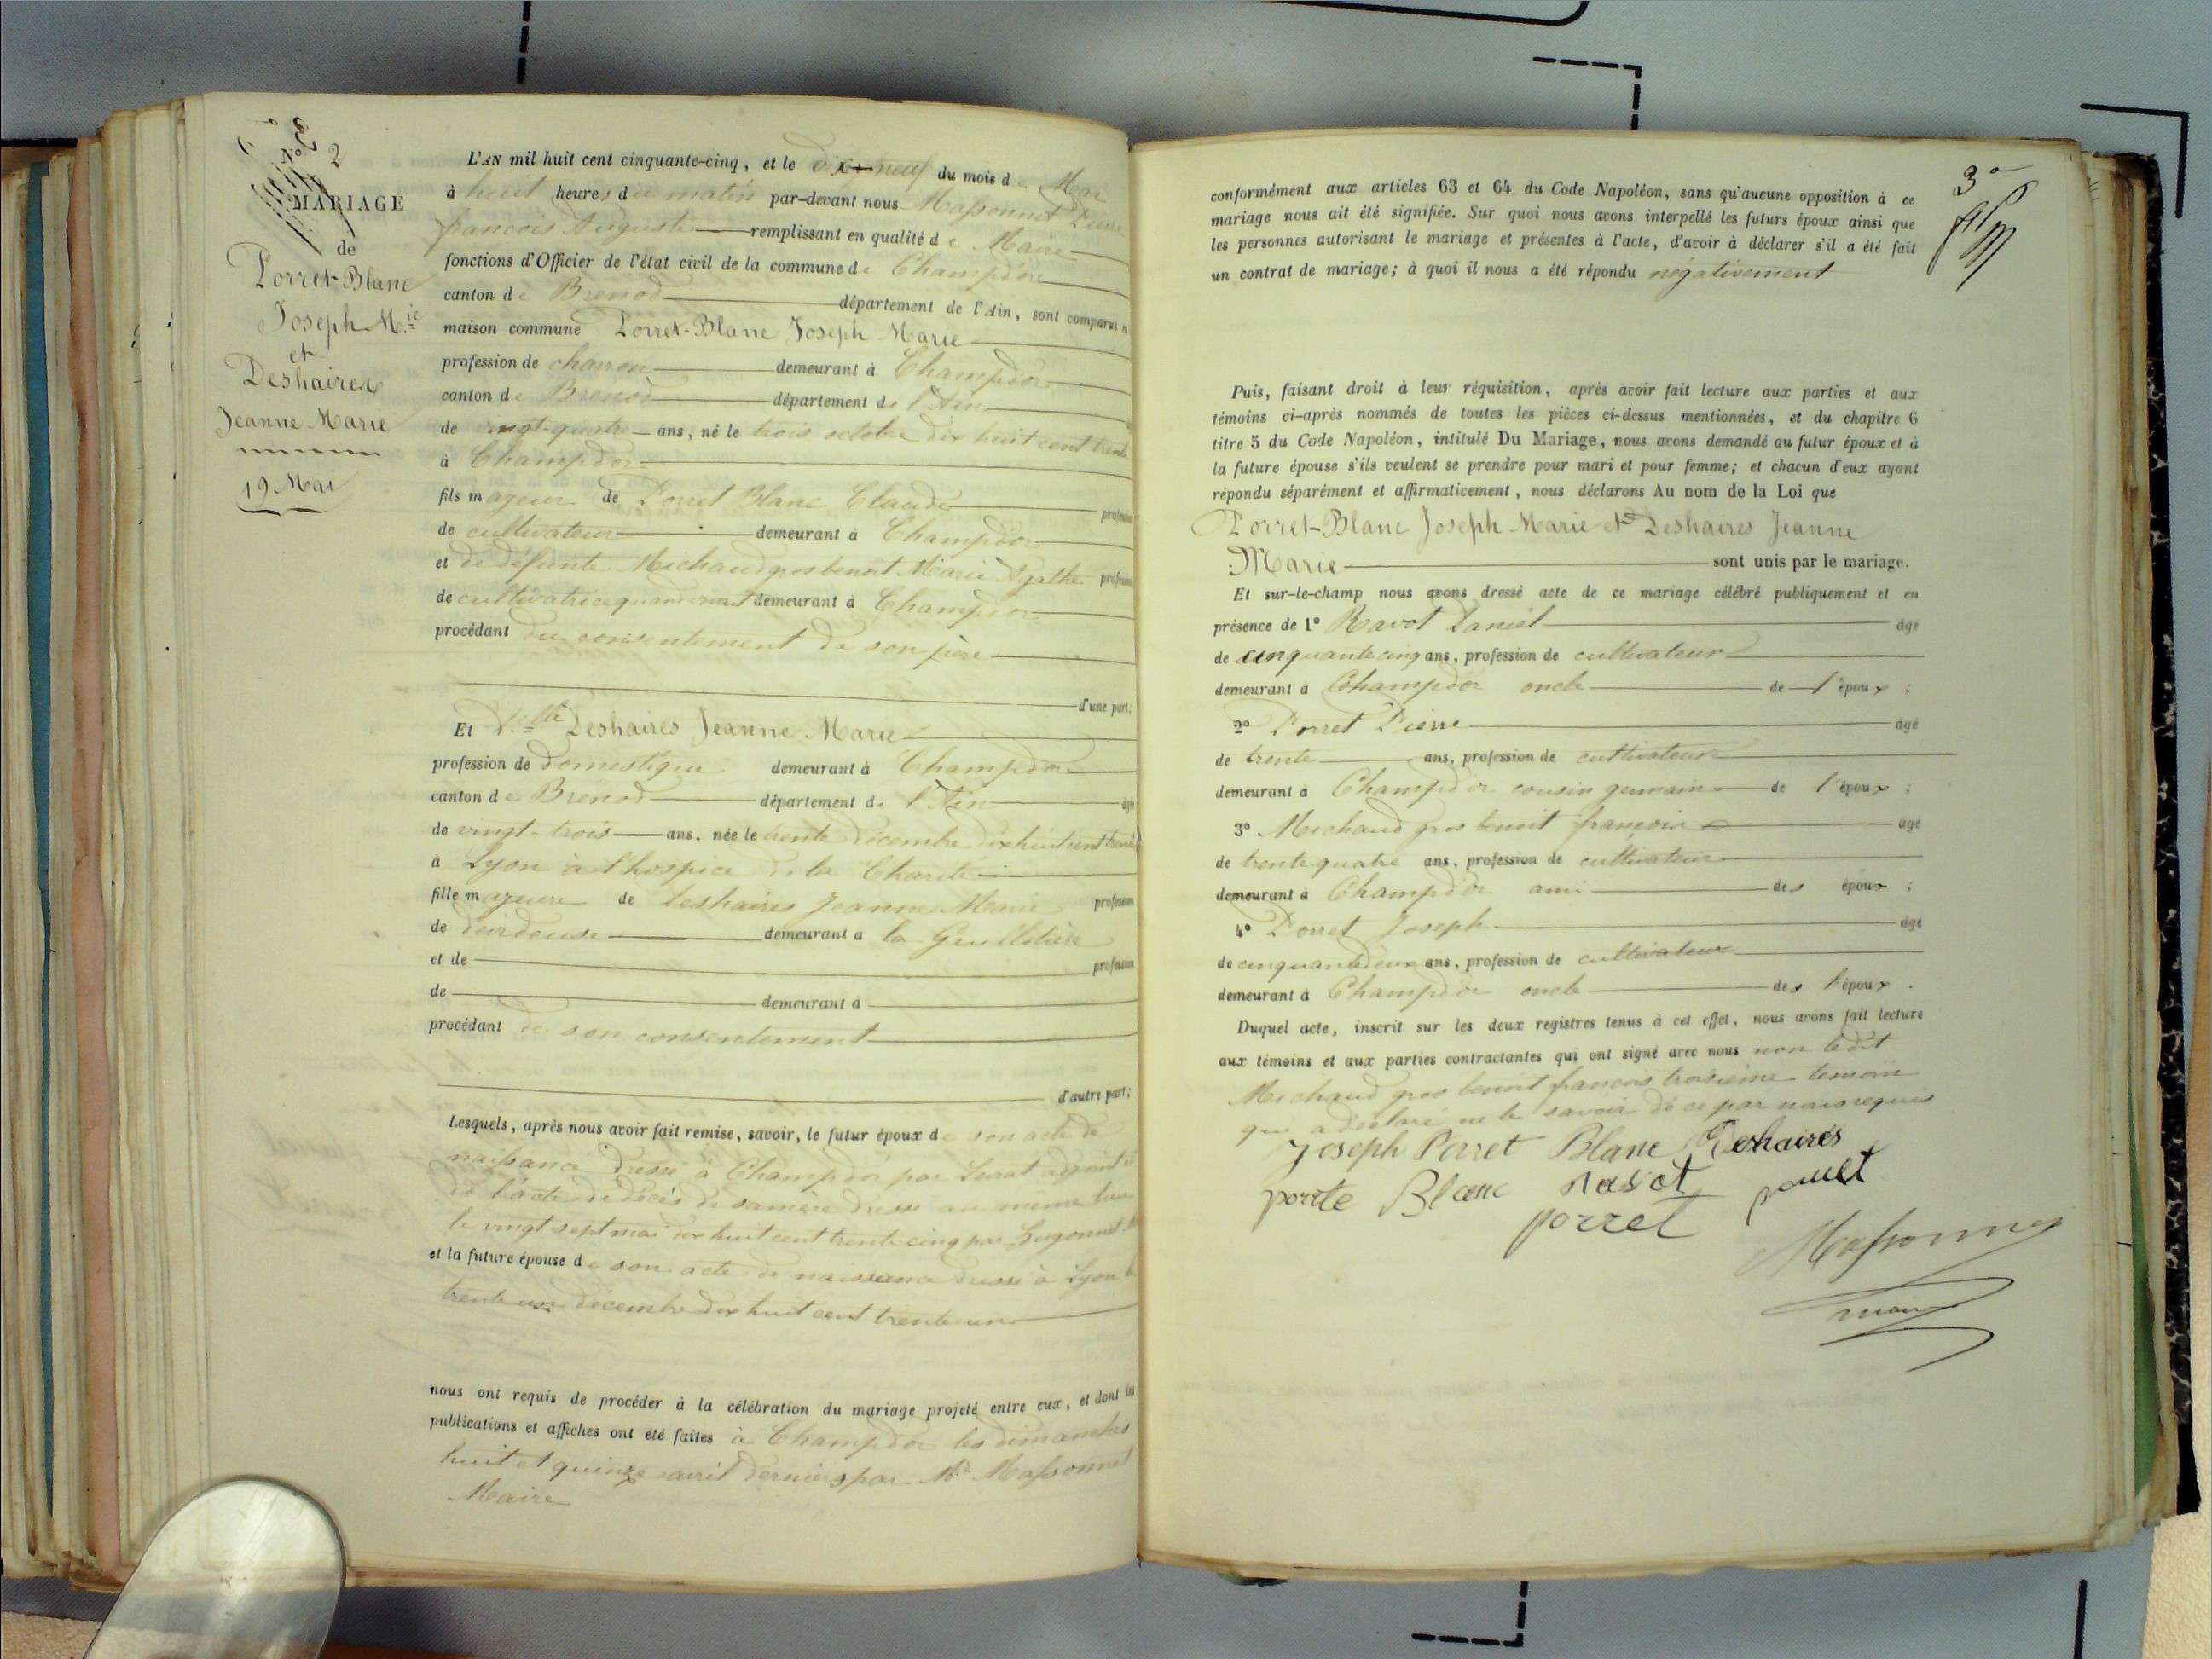 N° 2
MARIAGE
de
Porret-Blanc
Joseph M.ie
et
Deshaires
Jeanne Marie
19 Mai
L'AN mil huit cent cinquante-cinq, et le dix neuf du mois de Mai
à huit heures du matin par-devant nous Massonnet Pierre
francois Auguste remplissant en qualité de Maire
fonctions d'Officier de l'état civil de la commune de Champdor
canton de Brenod département de l'Ain, sont comparus en
maison commune Porret-Blanc Joseph Marie
profession de charron demeurant à Champdor
canton de Brenod département de l'Ain
de vingt-quatre ans, né le trois octobre dix huit cent trente
à Champdor
fils majeur de Porret Blanc Claude profession
de cultivateur demeurant à Champdor
et de défunte Michaud gros benoit Marie Agathe profession
de cultivatrice quand vivait demeurant à Champdor
procédant du consentement de son père
d'une part;
Et D.elle Deshaires Jeanne Marie
profession de domestique demeurant à Champdor
canton de Brenod département de l'Ain âgée
de vingt-trois ans, née le trente décembre dix huit cent trente
à Lyon à l'hospice de la Charité
fille majeure de Deshaires Jeanne Marie profession
de devideuse demeurant à la Guillotière
et de profession
de demeurant à
procédant de son consentement
d'autre part;
Lesquels, après nous avoir fait remise, savoir, le futur époux de son acte de
naissance dressé à Champdor par adjoint
de l'acte de décès de sa mère dressé au même lieu
le vingt sept mai dix huit cent trente cinq par
et la future épouse de son acte de naissance dressé à Lyon le
trente un décembre dix huit cent trente un
nous ont requis de procéder à la célébration du mariage projeté entre eux, et dont les
publications et affiches ont été faites à Champdor les dimanches
huit et quinze avril derniers par M.r Massonnet
Maire
3e
conformément aux articles 63 et 64 du Code Napoléon, sans qu'aucune opposition à ce
mariage nous ait été signifiée. Sur quoi nous avons interpellé les futurs époux ainsi que
les personnes autorisant le mariage et présentes à l'acte, d'avoir à déclarer s'il a été fait
un contrat de mariage; à quoi il nous a été répondu négativement
Puis, faisant droit à leur réquisition, après avoir fait lecture aux parties et aux
témoins ci-après nommés de toutes les pièces ci-dessus mentionnées, et du chapitre 6
titre 5 du Code Napoléon, intitulé Du Mariage, nous avons demandé au futur époux et à
la future épouse s'ils veulent se prendre pour mari et pour femme; et chacun d'eux ayant
répondu séparément et affirmativement, nous déclarons Au nom de la Loi que
Porret-Blanc Joseph Marie et Deshaires Jeanne
Marie sont unis par le mariage.
Et sur-le-champ nous avons dressé acte de ce mariage célébré publiquement et en
présence de 1° Ravot Daniel âgé
de cinquante cinq ans, profession de cultivateur
demeurant à Champdor oncle de l'époux;
2° Porret Pierre âgé
de trente ans, profession de cultivateur
demeurant à Champdor cousin germain de l'époux;
3° Michaud gros benoit françois âgé
de trente quatre ans, profession de cultivateur
demeurant à Champdor ami des époux;
4° Porret Joseph âgé
de cinquante deux ans, profession de cultivateur
demeurant à Champdor oncle de l'époux.
Duquel acte, inscrit sur les deux registres tenus à cet effet, nous avons fait lecture
aux témoins et aux parties contractantes qui ont signé avec nous non ledit
Michaud gros benoit françois troisième témoin
qui a déclaré ne le savoir de ce par nous requis
Joseph Porret Blanc Deshaires
porrte Blanc Ravot porret
porret
Massonnet
maire